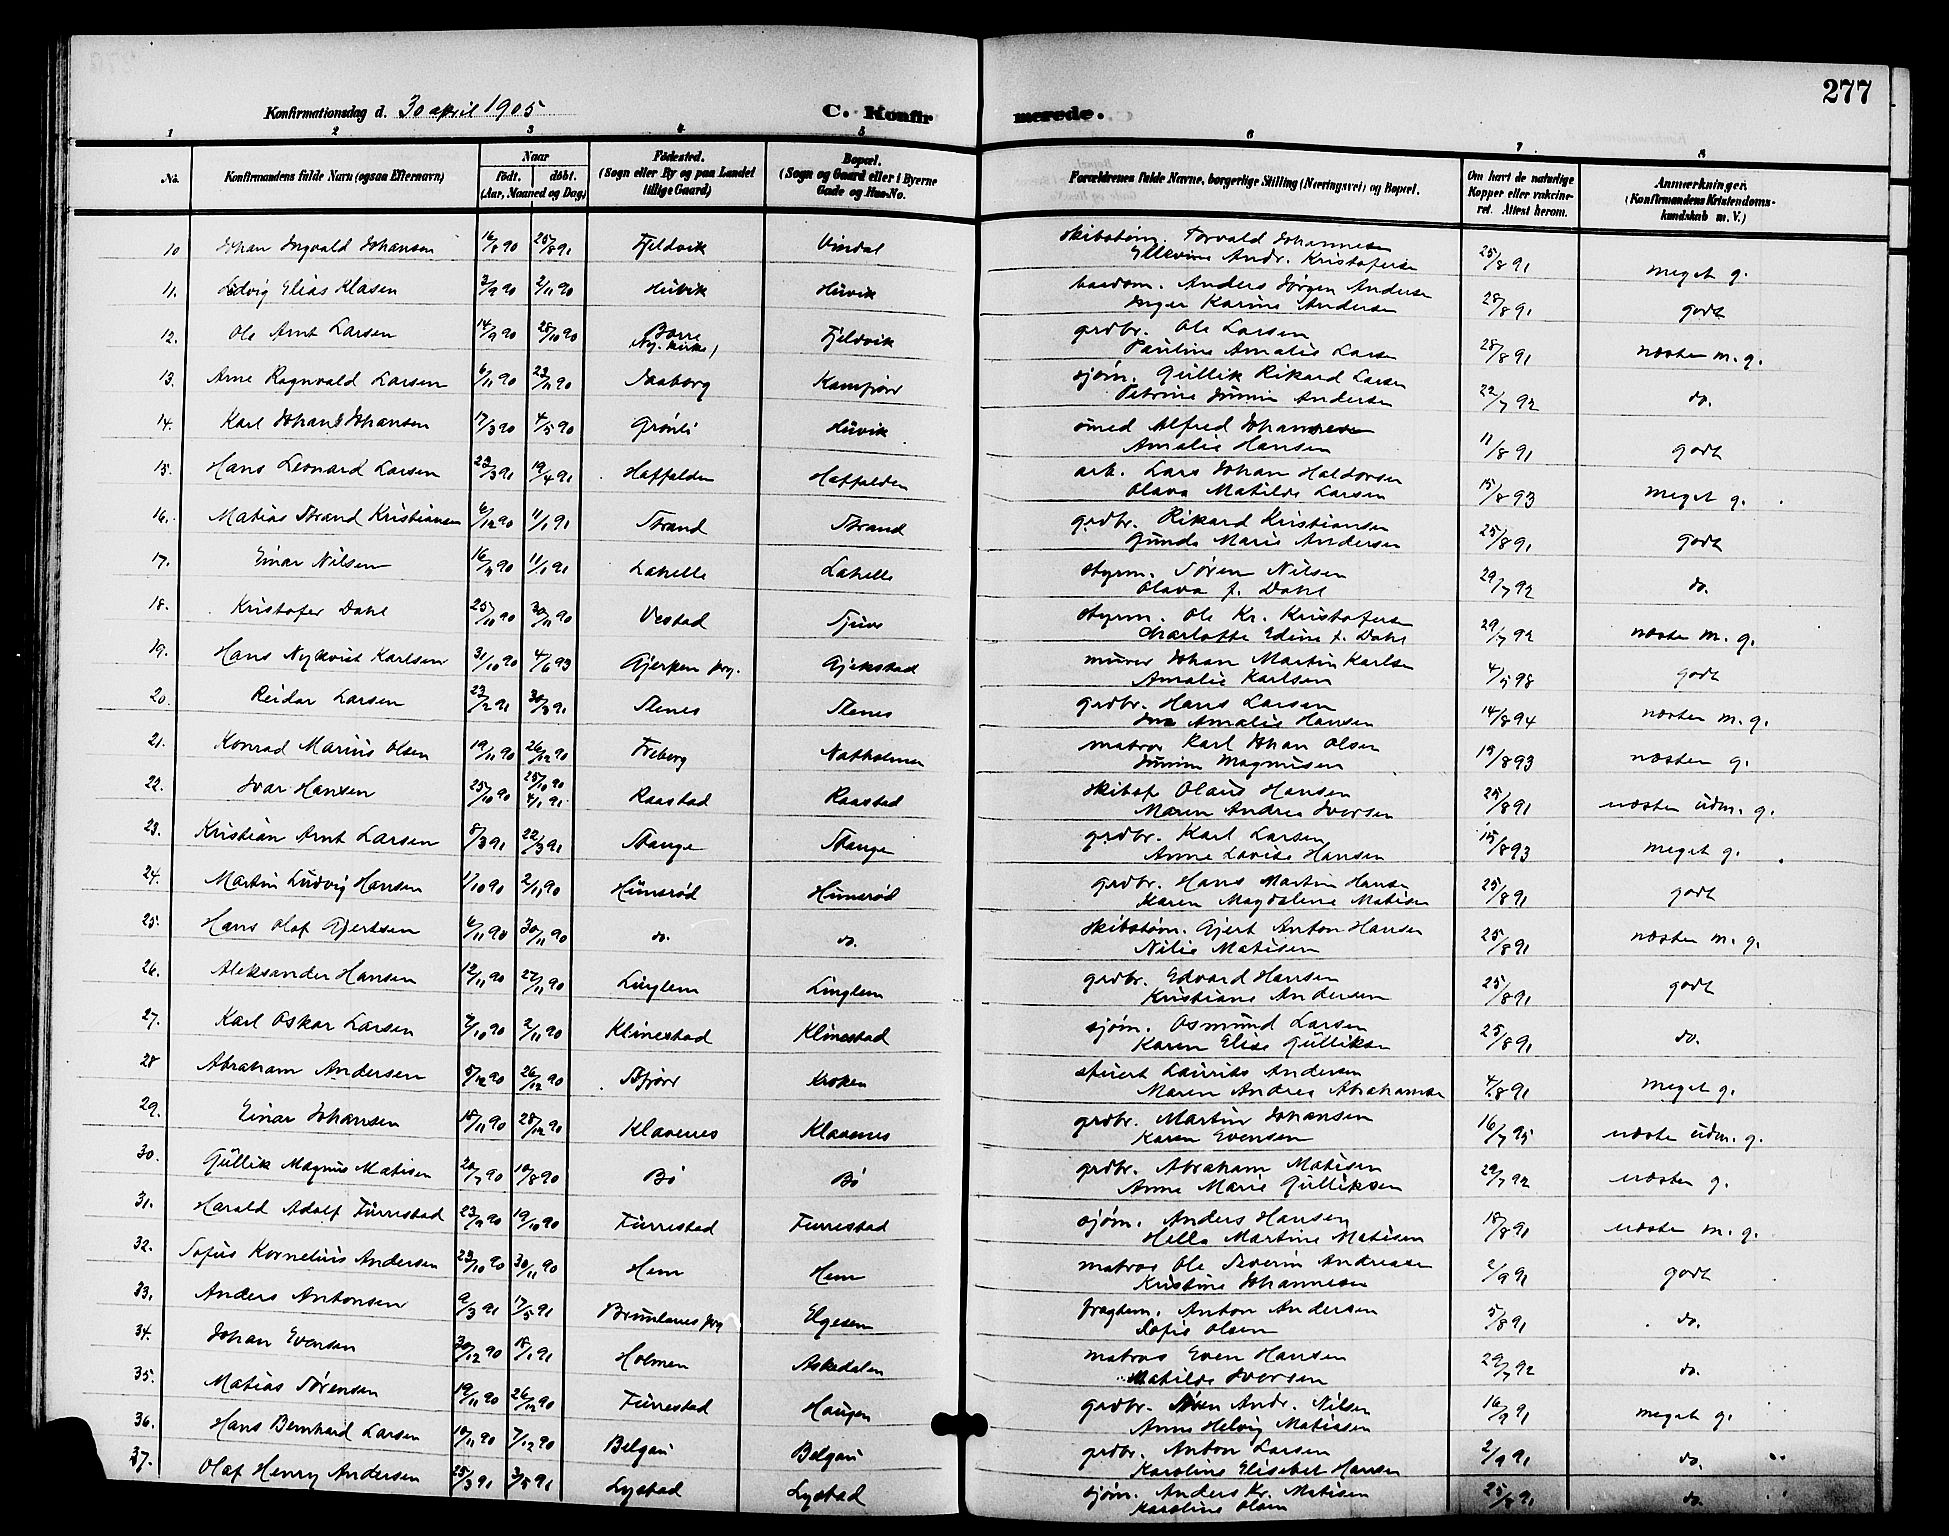 277
Konfirmationsdag d. 30 april 1905 C. Konfirmerede.
1 2 3 4 5 6 7 8
No. Konfirmandens fulde Navn (ogsaa Efternavn) Naar født. døbt. (Aar, Maaned og Dag) Fødested. (Sogn eller By og paa Landet tillige Gaard) Bopæl. (Sogn og Gaard eller i Byerne Gade og Hus-No. Forældrenes fulde Navne, borgerlige Stilling (Næringsvei) og Bopæl. Om havt de naturlige Kopper eller vakcineret. Attest herom. Anmærkninger. (Konfirmandens Kristendomskundskab m. V.)
10 Johan Ingvald Johansen 16/8 90 25/8 91 Fjeldvik Vindal skibstøm. Torvald Johannesen 25/8 91 meget g.
Ellevine Andr. Kristofersen
11. Ludvig Elias Klasen 3/9 90 2/11 90 Huvik Huvik Anders Jørgen Andersen 28/8 91 godt
Inger Karine Andersen
12. Ole Arnt Larsen 14/9 90 28/10 90 Borre (Ny. kirke) Fjeldvik grdbr. Ole Larsen 28/8 91 næsten m. g.
Pauline Amalie Larsen
13. Arne Ragnvald Larsen 6/11 90 23/11 90 Kamfjor sjøm. Gullik Rikard Larsen 22/7 92 do.
Petrine Andersen
14. Karl Johan Johansen 17/3 90 4/5 90 Grønli Huvik smed Alfred Johannesen 11/8 91 godt
Amalie Hansen
15. Hans Leonard Larsen 23/3 91 19/4 91 Haffalden Haffalden arb. Lars Johan Haldorsen 15/8 93 meget g.
Olava Matilde Larsen
16. Matias Strand Kristiansen 6/12 90 11/1 91 Strand Strand grdbr. Rikard Kristiansen 25/8 91 godt
Gunda Marie Andersen
17. Einar Nilsen 16/11 90 11/1 91 Lahelle Lahelle styrm. Søren Nilsen 29/7 92 do.
Olava f. Dahl
18. Kristofer Dahl 25/10 90 30/11 90 Vestad styrm. Ole Kr. Kristofersen 29/7 92 næsten m. g.
Charlotte Edine f. Dahl
19. Hans Nykvist Karlsen 31/10 90 4/6 93 Gjerpen prg. Gjekstad murer Johan Martin Karlsen 4/5 98 godt
Amalie Karlsen
20. Reidar Larsen 23/2 91 30/3 91 Stenes Stenes grdbr. Hans Larsen 14/8 94 næsten m. g.
Amalie Hansen
21. Konrad Marius Olsen 19/11 90 26/12 90 Freberg Natholmen matros Karl Johan Olsen 19/8 93 næsten g.
Magnusen
22. Ivar Hansen 25/10 90 25/10 90 4/1 91 Raastad Raastad skibsf Olaus Hansen 25/8 91 næsten udm. g.
Maren Andrea Iversen
23. Kristian Arnt Larsen 8/3 91 22/3 91 Stange Stange grdbr. Karl Larsen 15/8 93 meget g.
Anne Lovise Hansen
24. Martin Ludvig Hansen 1/10 90 2/11 90 Hunsrød Hunsrød grdbr. Hans Martin Hansen 25/8 91 godt
Karen Magdalene Matisen
25. Hans Olaf Gjertsen 6/11 90 30/11 90 do. do. skibstøm. Gjert Anton Hansen 25/8 91 næsten m. g.
Nilie Matisen
26. Aleksander Hansen 12/11 90 27/11 90 Linglem Linglem grdbr. Edvard Hansen 25/8 91 godt
Kristiane Andersen
27. Karl Oskar Larsen 7/10 90 2/11 90 Klinestad Klinestad sjøm. Osmund Larsen 25/8 91 do.
Karen Elise Gulliksen
28 Abraham Andersen 5/12 90 26/12 90 Kroken Laurits Andersen 4/8 91 meget g.
Maren Andrea Abrahamsen
29. Einar Johansen 18/11 90 28/12 90 Klavenes Klavenes grdbr. Martin Johansen 16/7 95 næste udm. g.
Karen Evensen
30. Gullik Magnus Matisen 20/7 90 10/8 90 Bø Bø grdbr. Abraham Matisen 29/7 92 næsten g.
Anne Marie Gulliksen
31. Harald Adolf Furrestad 23/9 90 19/10 90 Furrestad Furrestad sjøm. Anders Hansen 18/8 91 næsten m. g.
Hella Martine Matisen
32. Sofus Kornelius Andersen 23/10 90 30/11 90 Hem Hem matros Ole Severin Andreasen 2/9 91 godt
Kristine Johannesen
33. Anders Antonsen 9/3 91 17/5 91 Brunlanes prg Elgesem fragtem. Anton Andersen 5/8 91 do.
Sofie Olsen
34. Johan Evensen 30/12 90 18/1 91 Holmen Askedalen matros Even Hansen 29/7 92 do.
Matilde Iversen
35. Matias Sørensen 19/11 90 26/12 90 Furrestad Haugen grdbr. Søren Andr. Nilsen 16/9 91 meget g.
Anne Helvig Matisen
36. Hans Bernhard Larsen 10/11 90 7/12 90 Belgau Belgau grdbr. Anton Larsen 2/9 91 do.
Karoline Elisebet Hansen
37. Olaf Henry Andersen 25/3 91 3/5 91 Lystad Lystad sjøm. Anders Kr. Matisen 25/8 91 do.
Karoline Olsen